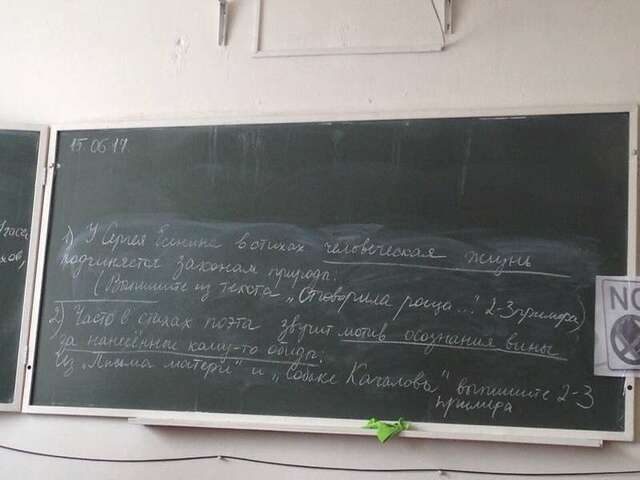 15.06.17.
1) У Сергея Есенина в стихах человеческая жизнь
подчиняется законам природы:
(Выпишите из текста „Отговорила роща..." 2-3 примера)
2) Часто в стихах поэта звучит мотив осознания вины
за нанесённые кому-то обиды:
из „Письма матери" и „Собаке Качалова" выпишите 2-3
примера
NO